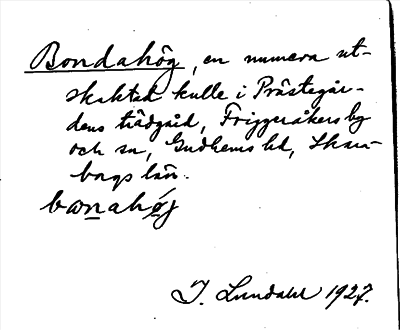 Bondahög, en numera ut-
skaktad kulle i Prästegår-
dens trädgård, Friggeråkers by
och sn, Gudhems hd, Skara-
borgs län.
bωnahøg
J. Lundahl 1927.